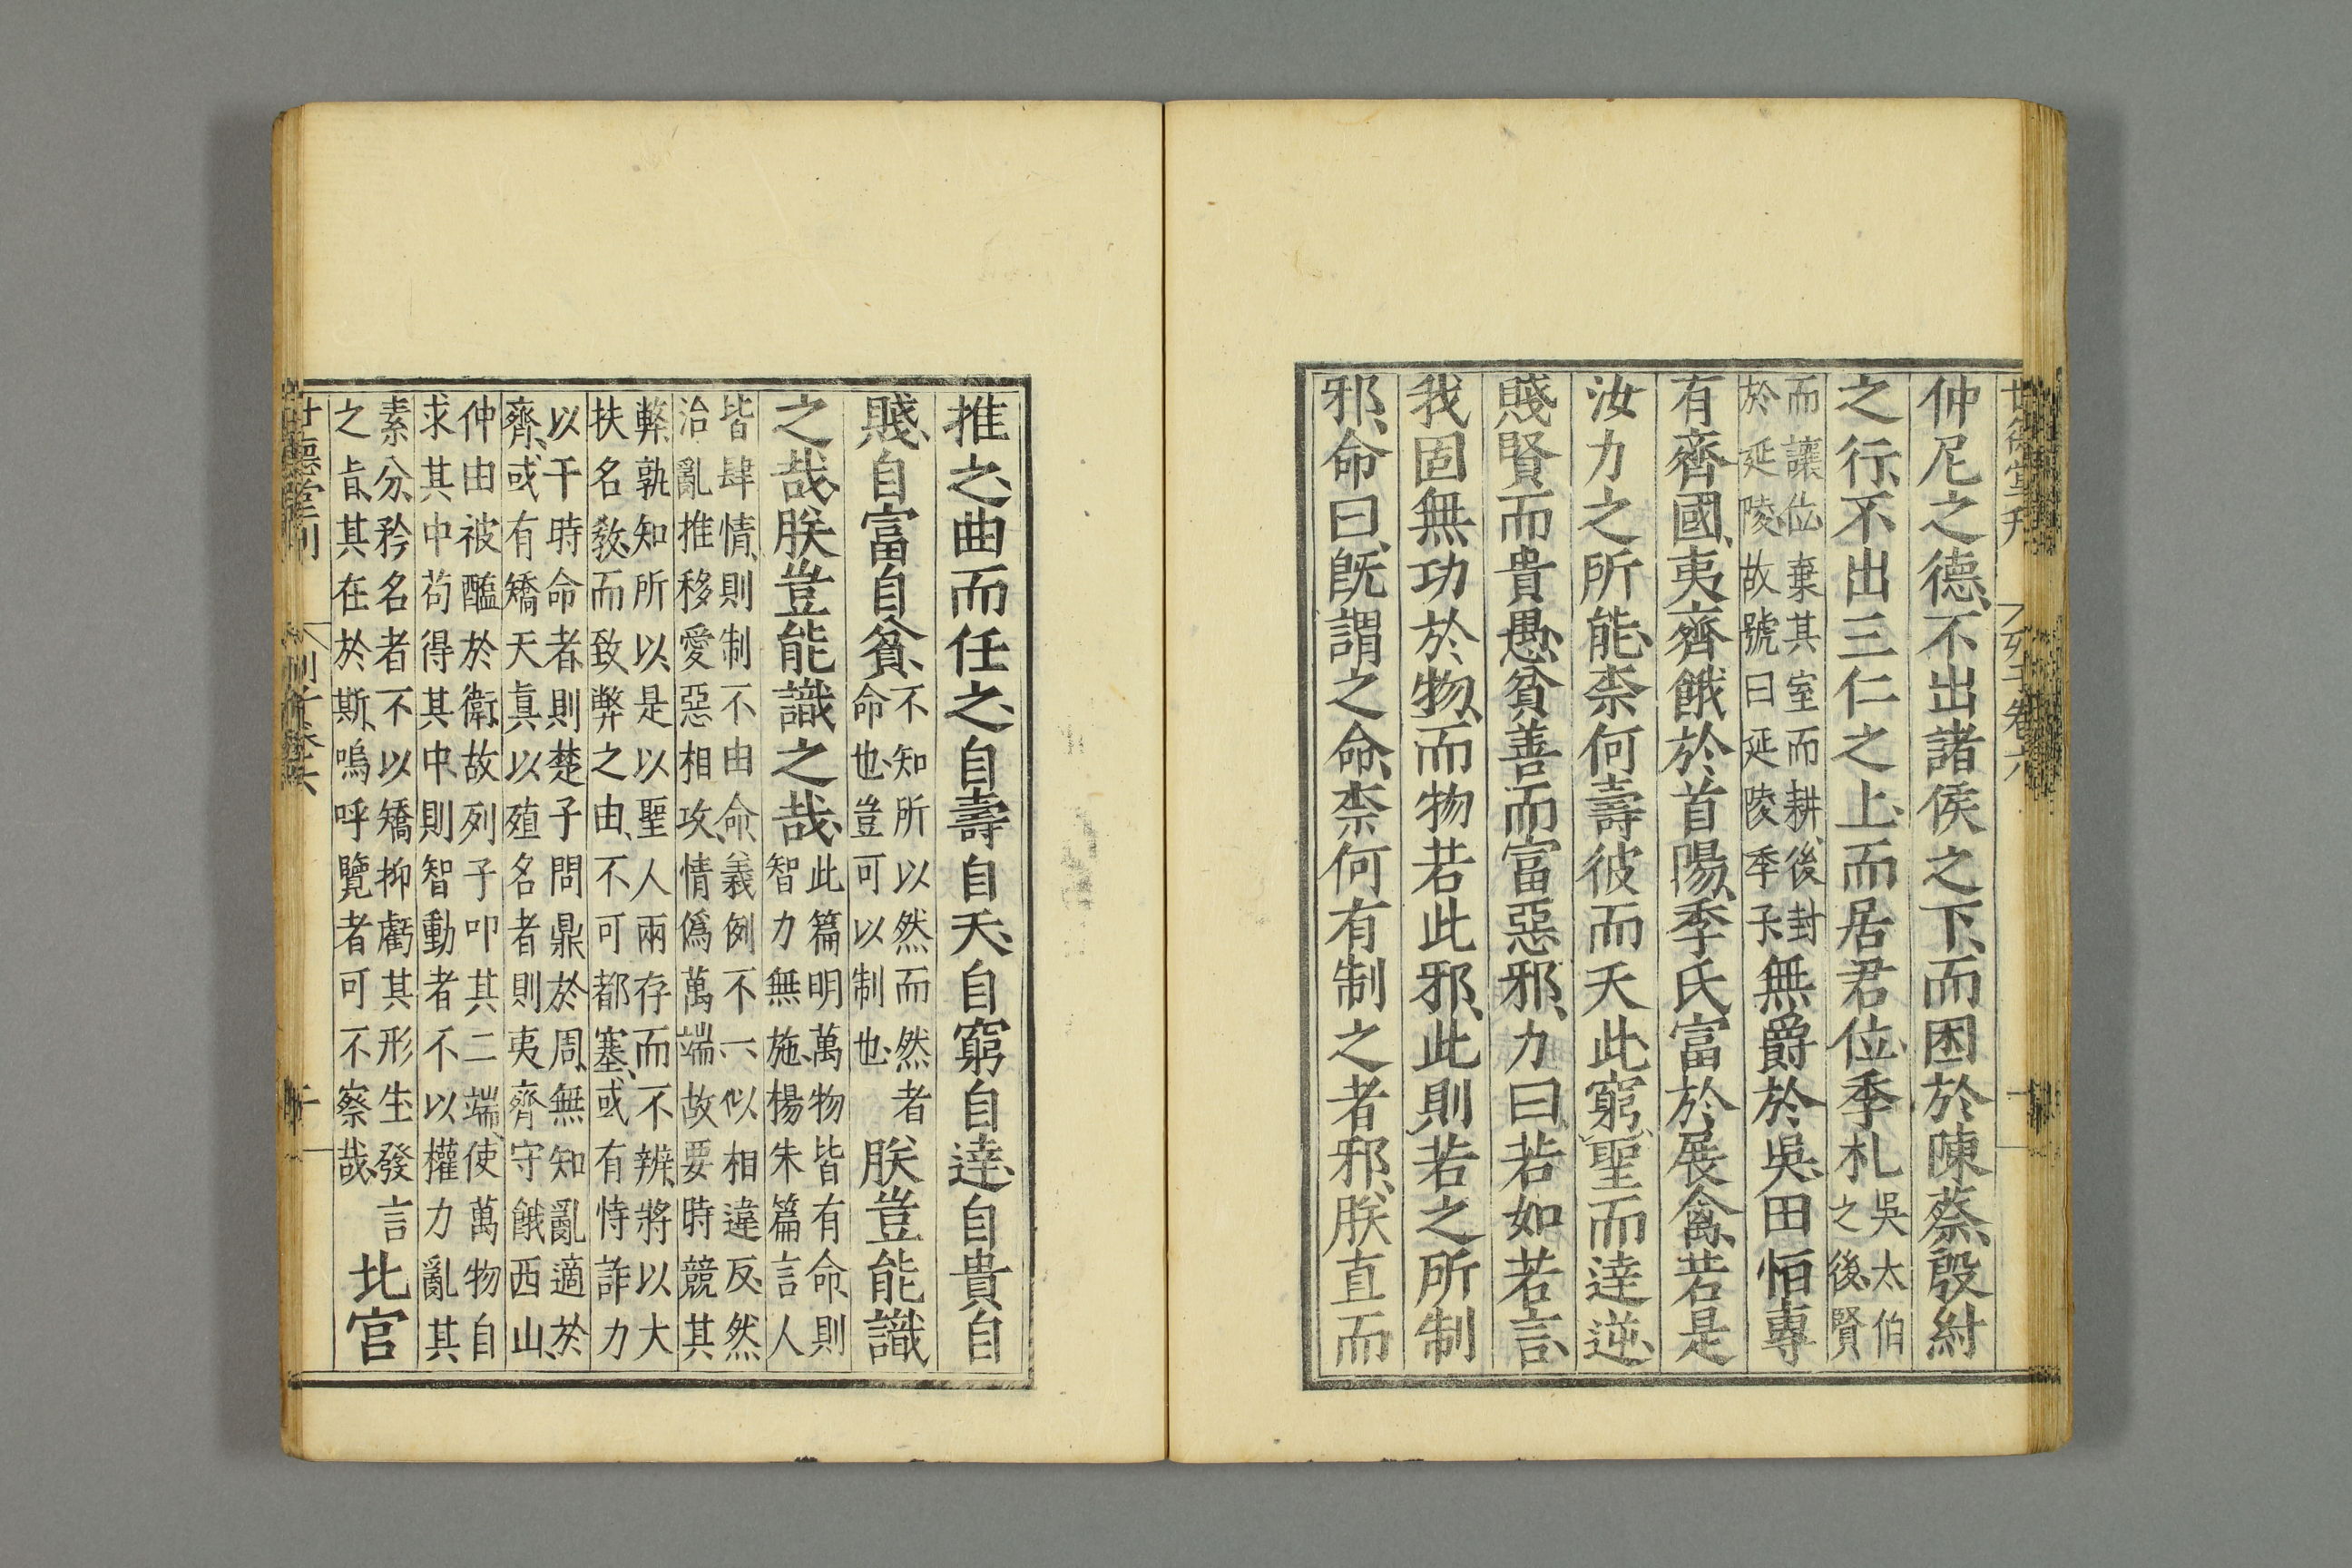 仲尼之德、不出諸侯之下、而困於陳蔡、殷紂
之行、不出三仁之上、而居君位、季札吳太伯之後、賢
而讓位、棄其室而耕、後封於延陵、故號曰延陵季子、無爵於吳、田恒專
有齊國、夷齊餓於首陽、季氏富於展禽、若是
汝力之所能、柰何壽彼而夭此、窮聖而達逆、
賤賢而貴愚、貧善而富惡邪、力曰、若如若言、
我固無功於物、而物若此邪、此則若之所制
邪、命曰、旣謂之命、柰何有制之者邪、朕直而
推之、曲而任之、自壽自夭、自窮自達、自貴自
賤、自富自貧、不知所以然而然者命也、豈可以制也、朕豈能識
之哉、朕豈能識之哉、此篇明萬物皆有命、則智力無施、楊朱篇言人
皆肆情、則制不由命、義例不一、似相違反、然治亂推移、愛惡相攻、情僞萬端、故要時競其
弊、孰知所以、是以聖人兩存而不辨、將以大扶名敎、而致弊之由、不可都塞、或有恃詐力
以干時命者、則楚子問鼎於周、無知亂適於齊、或有矯天眞以殖名者、則夷齊守餓西山、
仲由被醢於衛、故列子叩其二端、使萬物自求其中、苟得其中、則智動者不以權力亂其
素分、矜名者不以矯抑虧其形生、發言之旨、其在於斯、嗚呼覽者可不察哉、北宮
世德堂刊
列子卷六